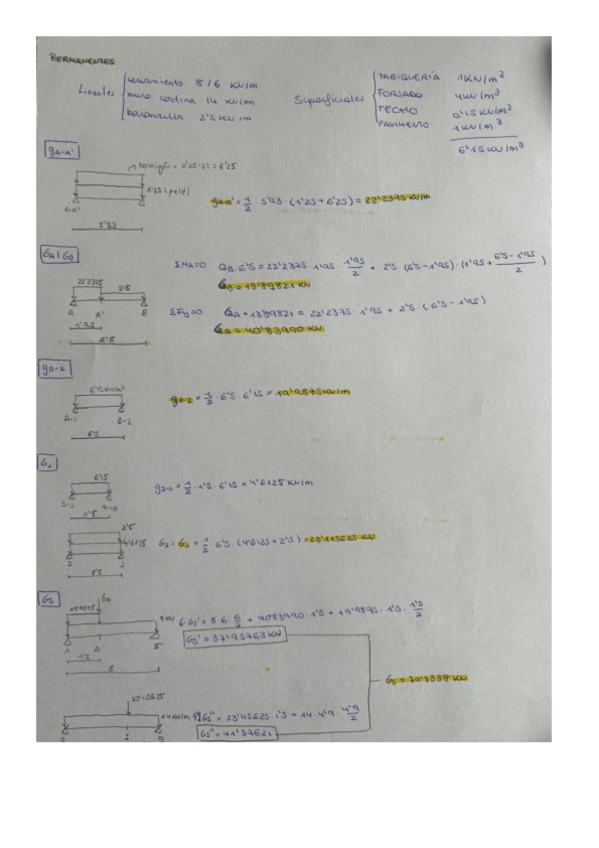 PERMANENTES
Lineales
cerramiento 8/6 kN/m
muro cortina 14 kN/m
barandilla 2'5 kN/m
Superficiales
TABIQUERÍA 1 KN/m²
FORJADO 4 kN/m²
TECHO 0'15 kN/m²
PAVIMENTO 1 kN/m²
6'15 kN/m²
gA-A'
hormigón = 0'25·25 = 6'25
A-A'
gA-A' = 1/2 · 5'93 · (1'25 + 6'25) = 22'2375 kN/m
GA/GB
22'2375 2'5
A A' B
1'95
6'5
ΣMA=0 QB·6'5 = 22'2375 · 1'95 · 1'95/2 + 2'5 · (6'5-1'95) · (1'95 + 6'5-1'95/2)
GB = 13'89821 kN
ΣFy=0 QA + 13'89821 = 22'2375 · 1'95 + 2'5 · (6'5-1'95)
GA = 40'83990 kN
gB-2
6'15 kN/m²
B-2
6'5
gB-2 = 1/2 · 6'5 · 6'15 = 19'9875 kN/m
6'15
1'5
= 1/2 · 1'5 · 6'15 = 4'6125 kN/m
2'5
4'6125
= 1/2 · 6'5 · (4'6125 + 2'5) = 23'115625 kN
G5
19'9875
8 kN
1 A 5
1'5
6
6·G5' = 8·6·6/2 + 40'83990 · 1'5 + 19'9875 · 1'5 · 1'5/2
G5' = 37'95763 kN
G5 = 79'3338 kN
14 kN/m
4'9 G5'' = 23'115625 · 1'5 + 14 · 4'9 · 4'9/2
G5'' = 41'37621